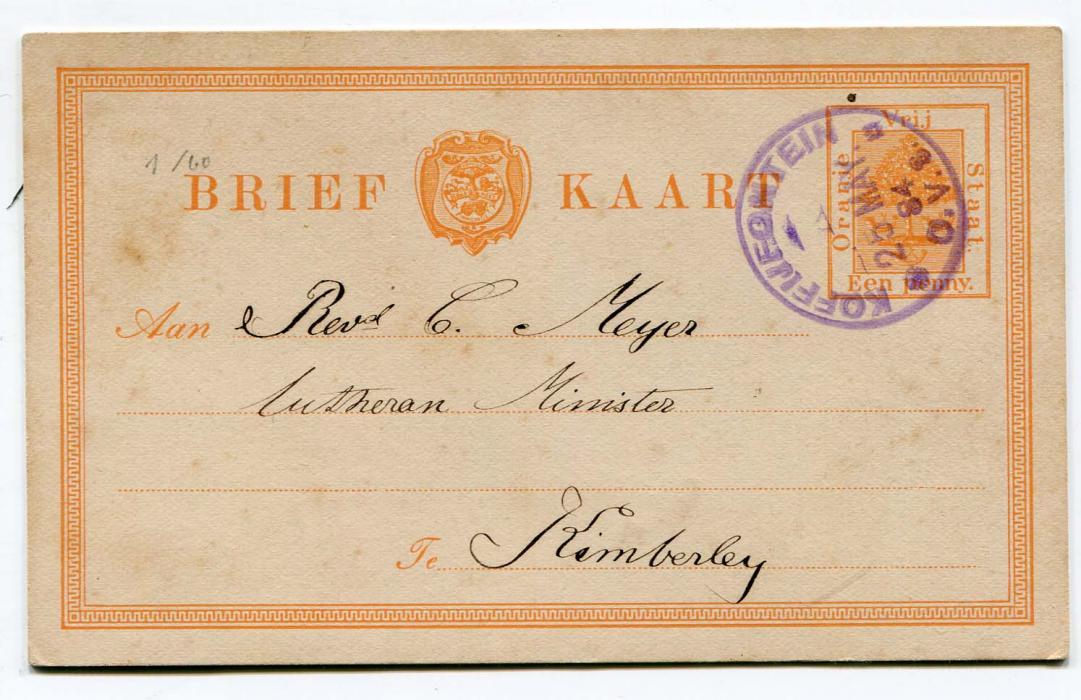 1/60
BRIEF KAART
Vrij
Oranje
Staat.
Een penny.
KOFFIJFONTEIN
O.V.S.
25 MAY.
84
Aan Revd C. Meyer
Lutheran Minister
Te Kimberley